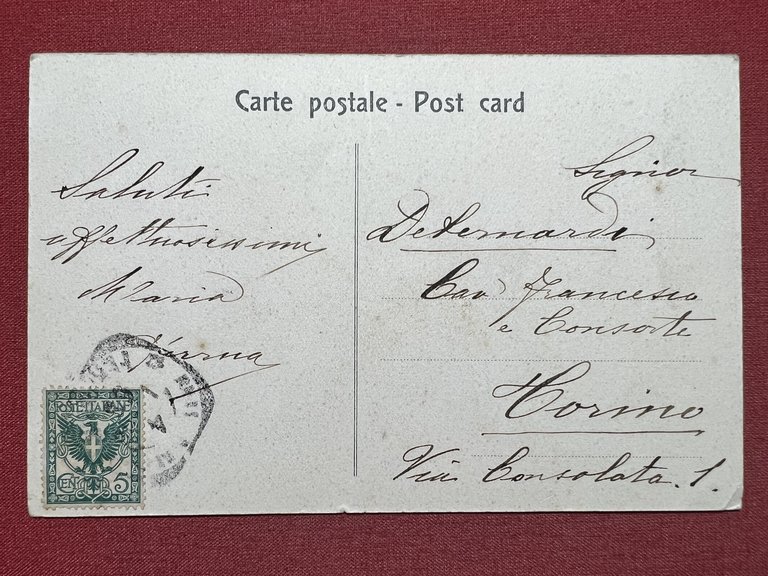 Carte postale - Post card
Saluti
affettuosissimi
Maria
Signor
Debernardi
Cav Francesco
e Consorte
Torino
Via Consolata. 1.
POSTE ITALIANE
5